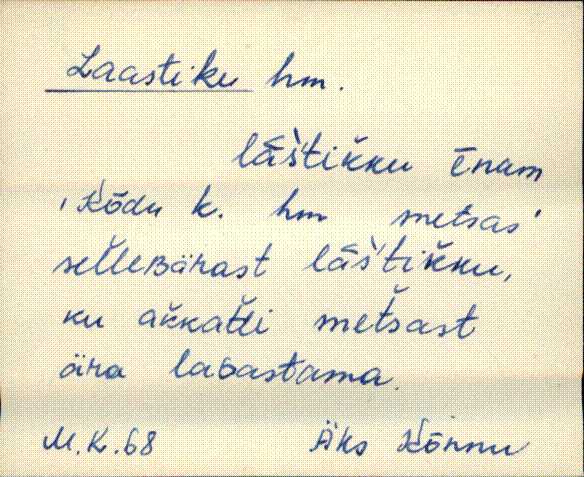 Laastiku hm.
lāš̆tik̆ku ēnam
'Kõdu k. hm metsas'
sel̆leʙärast lāš̆tik̆ku,
ku ak̆kat̆ti met̆sast
ära laʙastama.
M.K.68 Äks Kõnnu